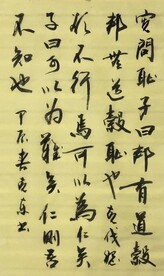 憲問恥子曰邦有道穀
邦無道穀恥也克伐怨
欲不行焉可以為仁矣
子曰可以為難矣仁則吾
不知也 甲辰 書